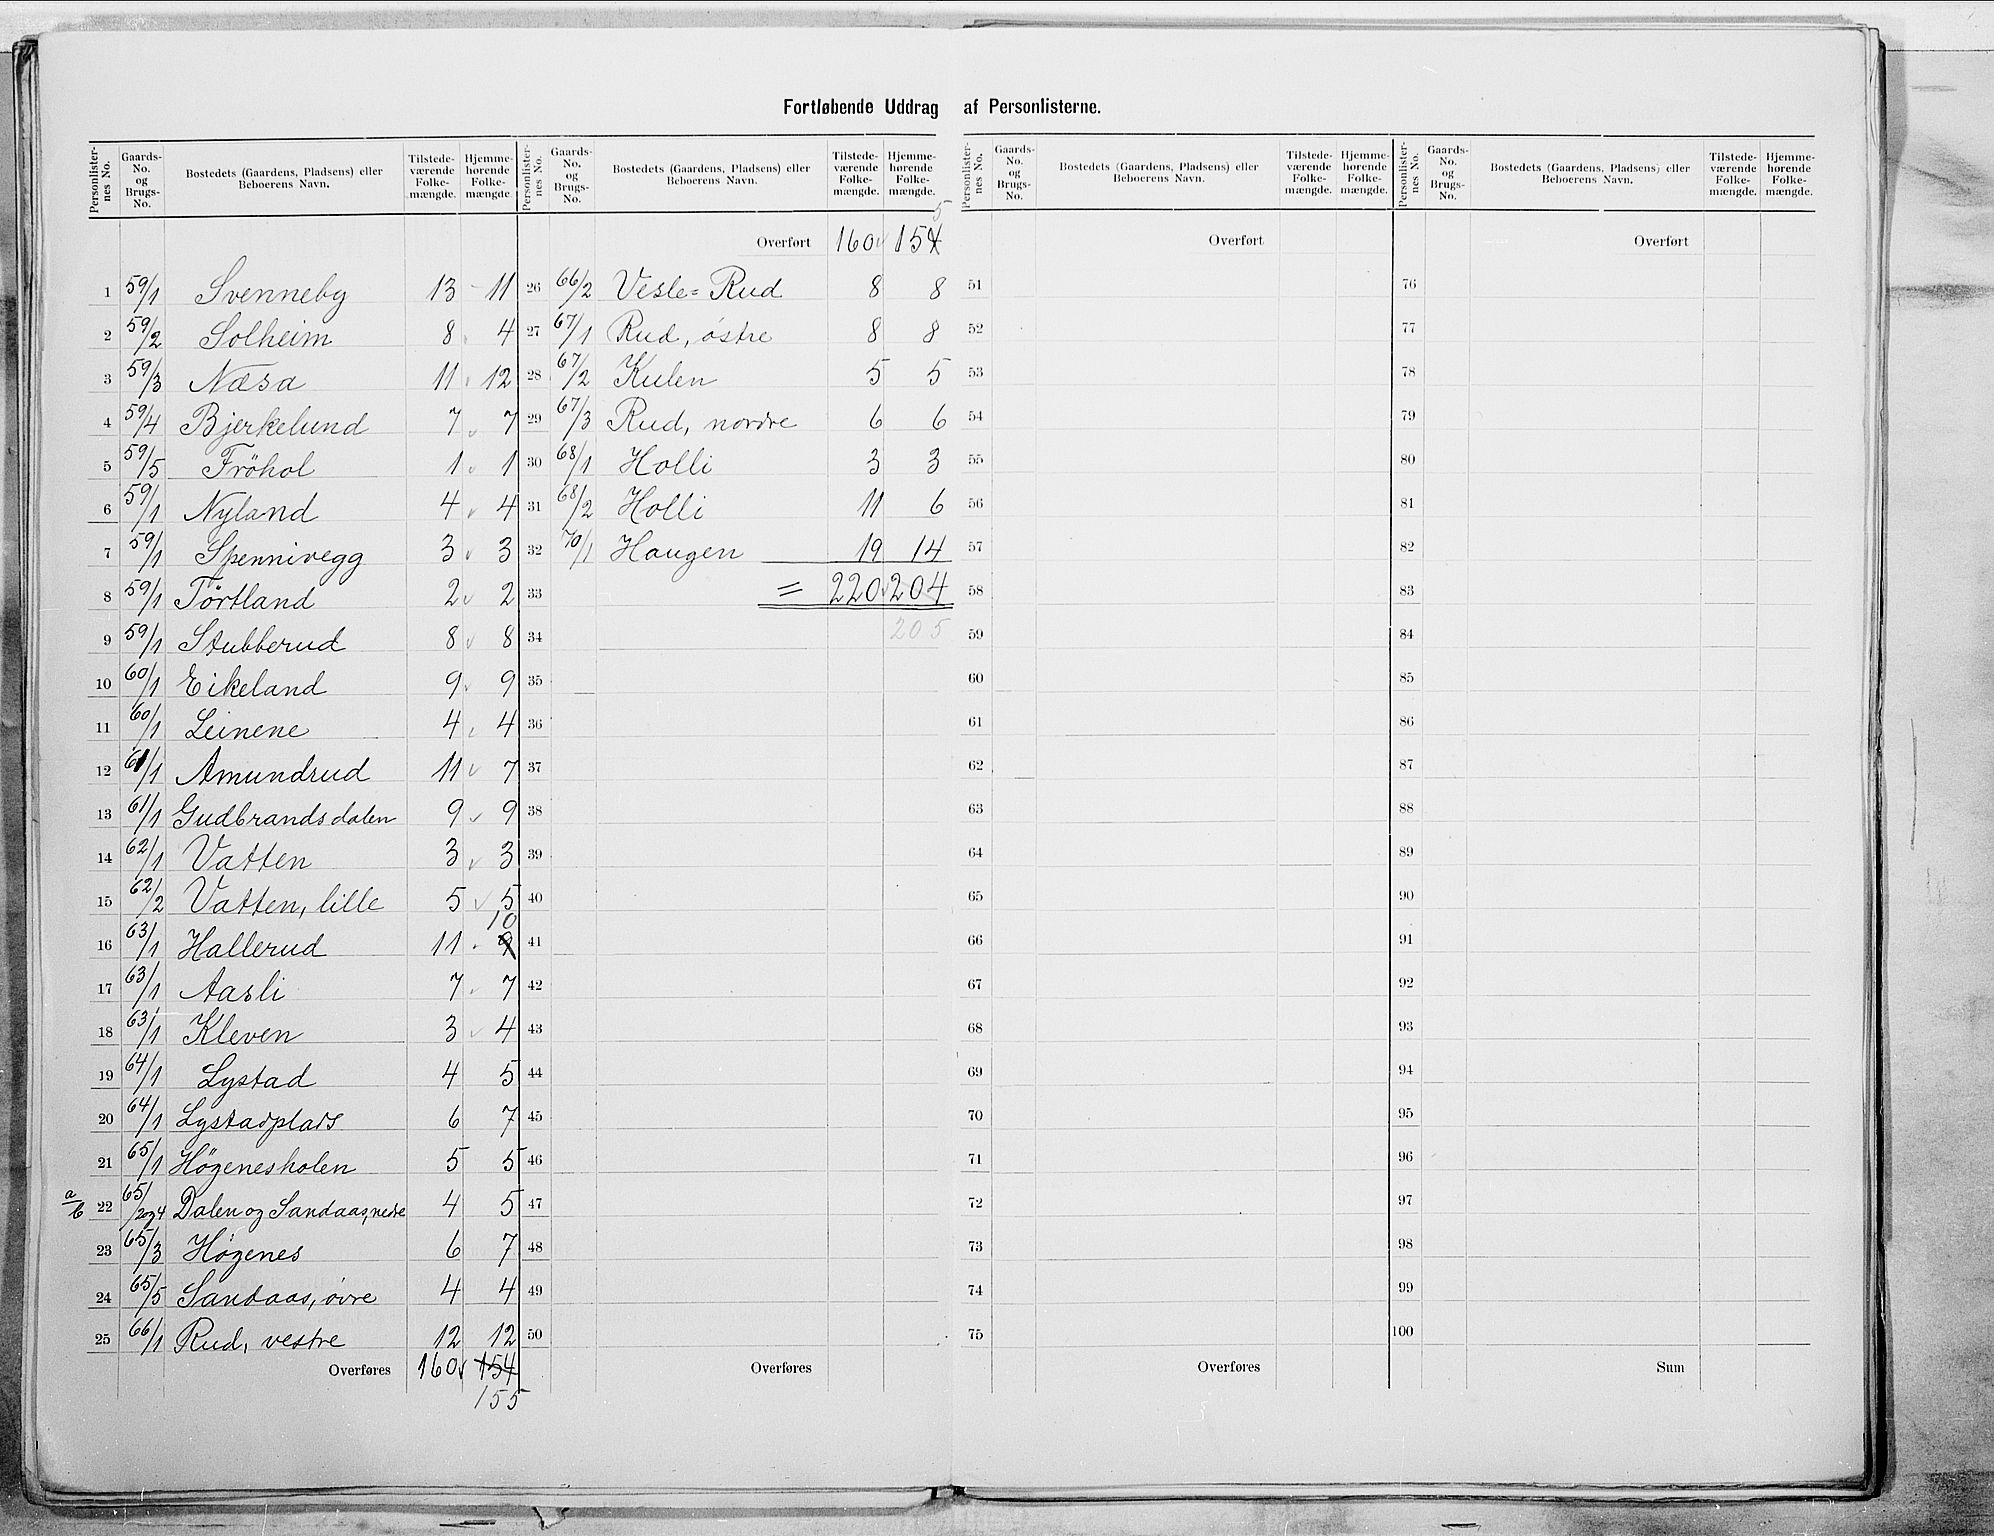 Fortløbende Uddrag af Personlisterne.
Personlister-nes No. | Gaards-No. og Brugs-No. | Bostedets (Gaardens, Pladsens) eller Beboerens Navn. | Tilstede-værende Folke-mængde. | Hjemme-hørende Folke-mængde.
1 59/1 Svenneby 13 11
2 59/2 Solheim 8 4
3 59/3 Næsa 11 12
4 59/4 Bjerkelund 7 7
5 59/5 Fröhol 1 1
6 59/1 Nyland 4 4
7 59/1 Spennivegg 3 3
8 59/1 Törtland 2 2
9 59/1 Stubberud 8 8
10 60/1 Eikeland 9 9
11 60/1 Leinene 4 4
12 61/1 Amundrud 11 7
13 61/1 Gudbrandsdalen 9 9
14 62/1 Vatten 3 3
15 62/2 Vatten, lille 5 5
16 63/1 Hallerud 11 9 10
17 63/1 Aasli 7 7
18 63/1 Kleven 3 4
19 64/1 Lystad 4 5
20 64/1 Lystadplads 6 7
21 65/1 Høgenesholen 5 5
a/b 22 65/2og4 Dalen og Sandaas, nedre 4 5
23 65/3 Høgenes 6 7
24 65/5 Sandaas, øvre 4 4
25 66/1 Rud, vestre 12 12
Overføres 160 154
155
Personlister-nes No. | Gaards-No. og Brugs-No. | Bostedets (Gaardens, Pladsens) eller Beboerens Navn. | Tilstede-værende Folke-mængde. | Hjemme-hørende Folke-mængde.
5
Overført 160 154
26 66/2 Vesle=Rud 8 8
27 67/1 Rud, østre 8 8
28 67/2 Kulen 5 5
29 67/3 Rud, nordre 6 6
30 68/1 Holli 3 3
31 68/2 Holli 11 6
32 70/1 Haugen 19 14
33 = 220 204
34 205
35
36
37
38
39
40
41
42
43
44
45
46
47
48
49
50
Overføres
Personlister-nes No. | Gaards-No. og Brugs-No. | Bostedets (Gaardens, Pladsens) eller Beboerens Navn. | Tilstede-værende Folke-mængde. | Hjemme-hørende Folke-mængde.
Overført
51
52
53
54
55
56
57
58
59
60
61
62
63
64
65
66
67
68
69
70
71
72
73
74
75
Overføres
Personlister-nes No. | Gaards-No. og Brugs-No. | Bostedets (Gaardens, Pladsens) eller Beboerens Navn. | Tilstede-værende Folke-mængde. | Hjemme-hørende Folke-mængde.
Overført
76
77
78
79
80
81
82
83
84
85
86
87
88
89
90
91
92
93
94
95
96
97
98
99
100
Sum